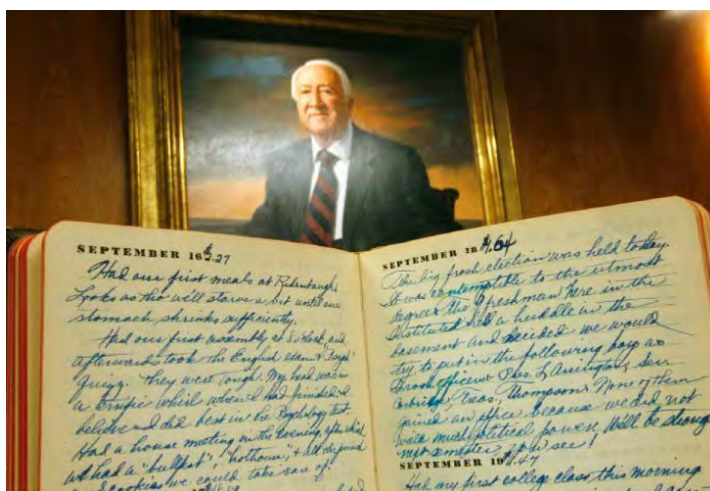 SEPTEMBER 16 $.27
Had our first meals at Ridenbaugh.
Looks as tho will starve a bit until our
stomach shrinks sufficiently.
Had our first assembly at 8 o'clock, and
afterwards took the English exam &
They were tough. My head was in
a terrific whirl when I had finished. I
believe I did best in the Psychology test.
Had a house meeting in the evening, after which
we had a "bullfest", "hothouse", & all the
& cookies we could take care of!
SEPTEMBER 18
The big frosh election was held today.
It was contemptible to the utmost
degree. The freshman here in the
Institute held a huddle in the
basement and decided we would
try to put in the following boys as
Frosh officers: Pres. L. Arrington; Secr.
Treas. Thompson. None of them
gained an office because we did not
wield much political power. Will be strong
next semester, you see!
SEPTEMBER 19
Had my first college class this morning